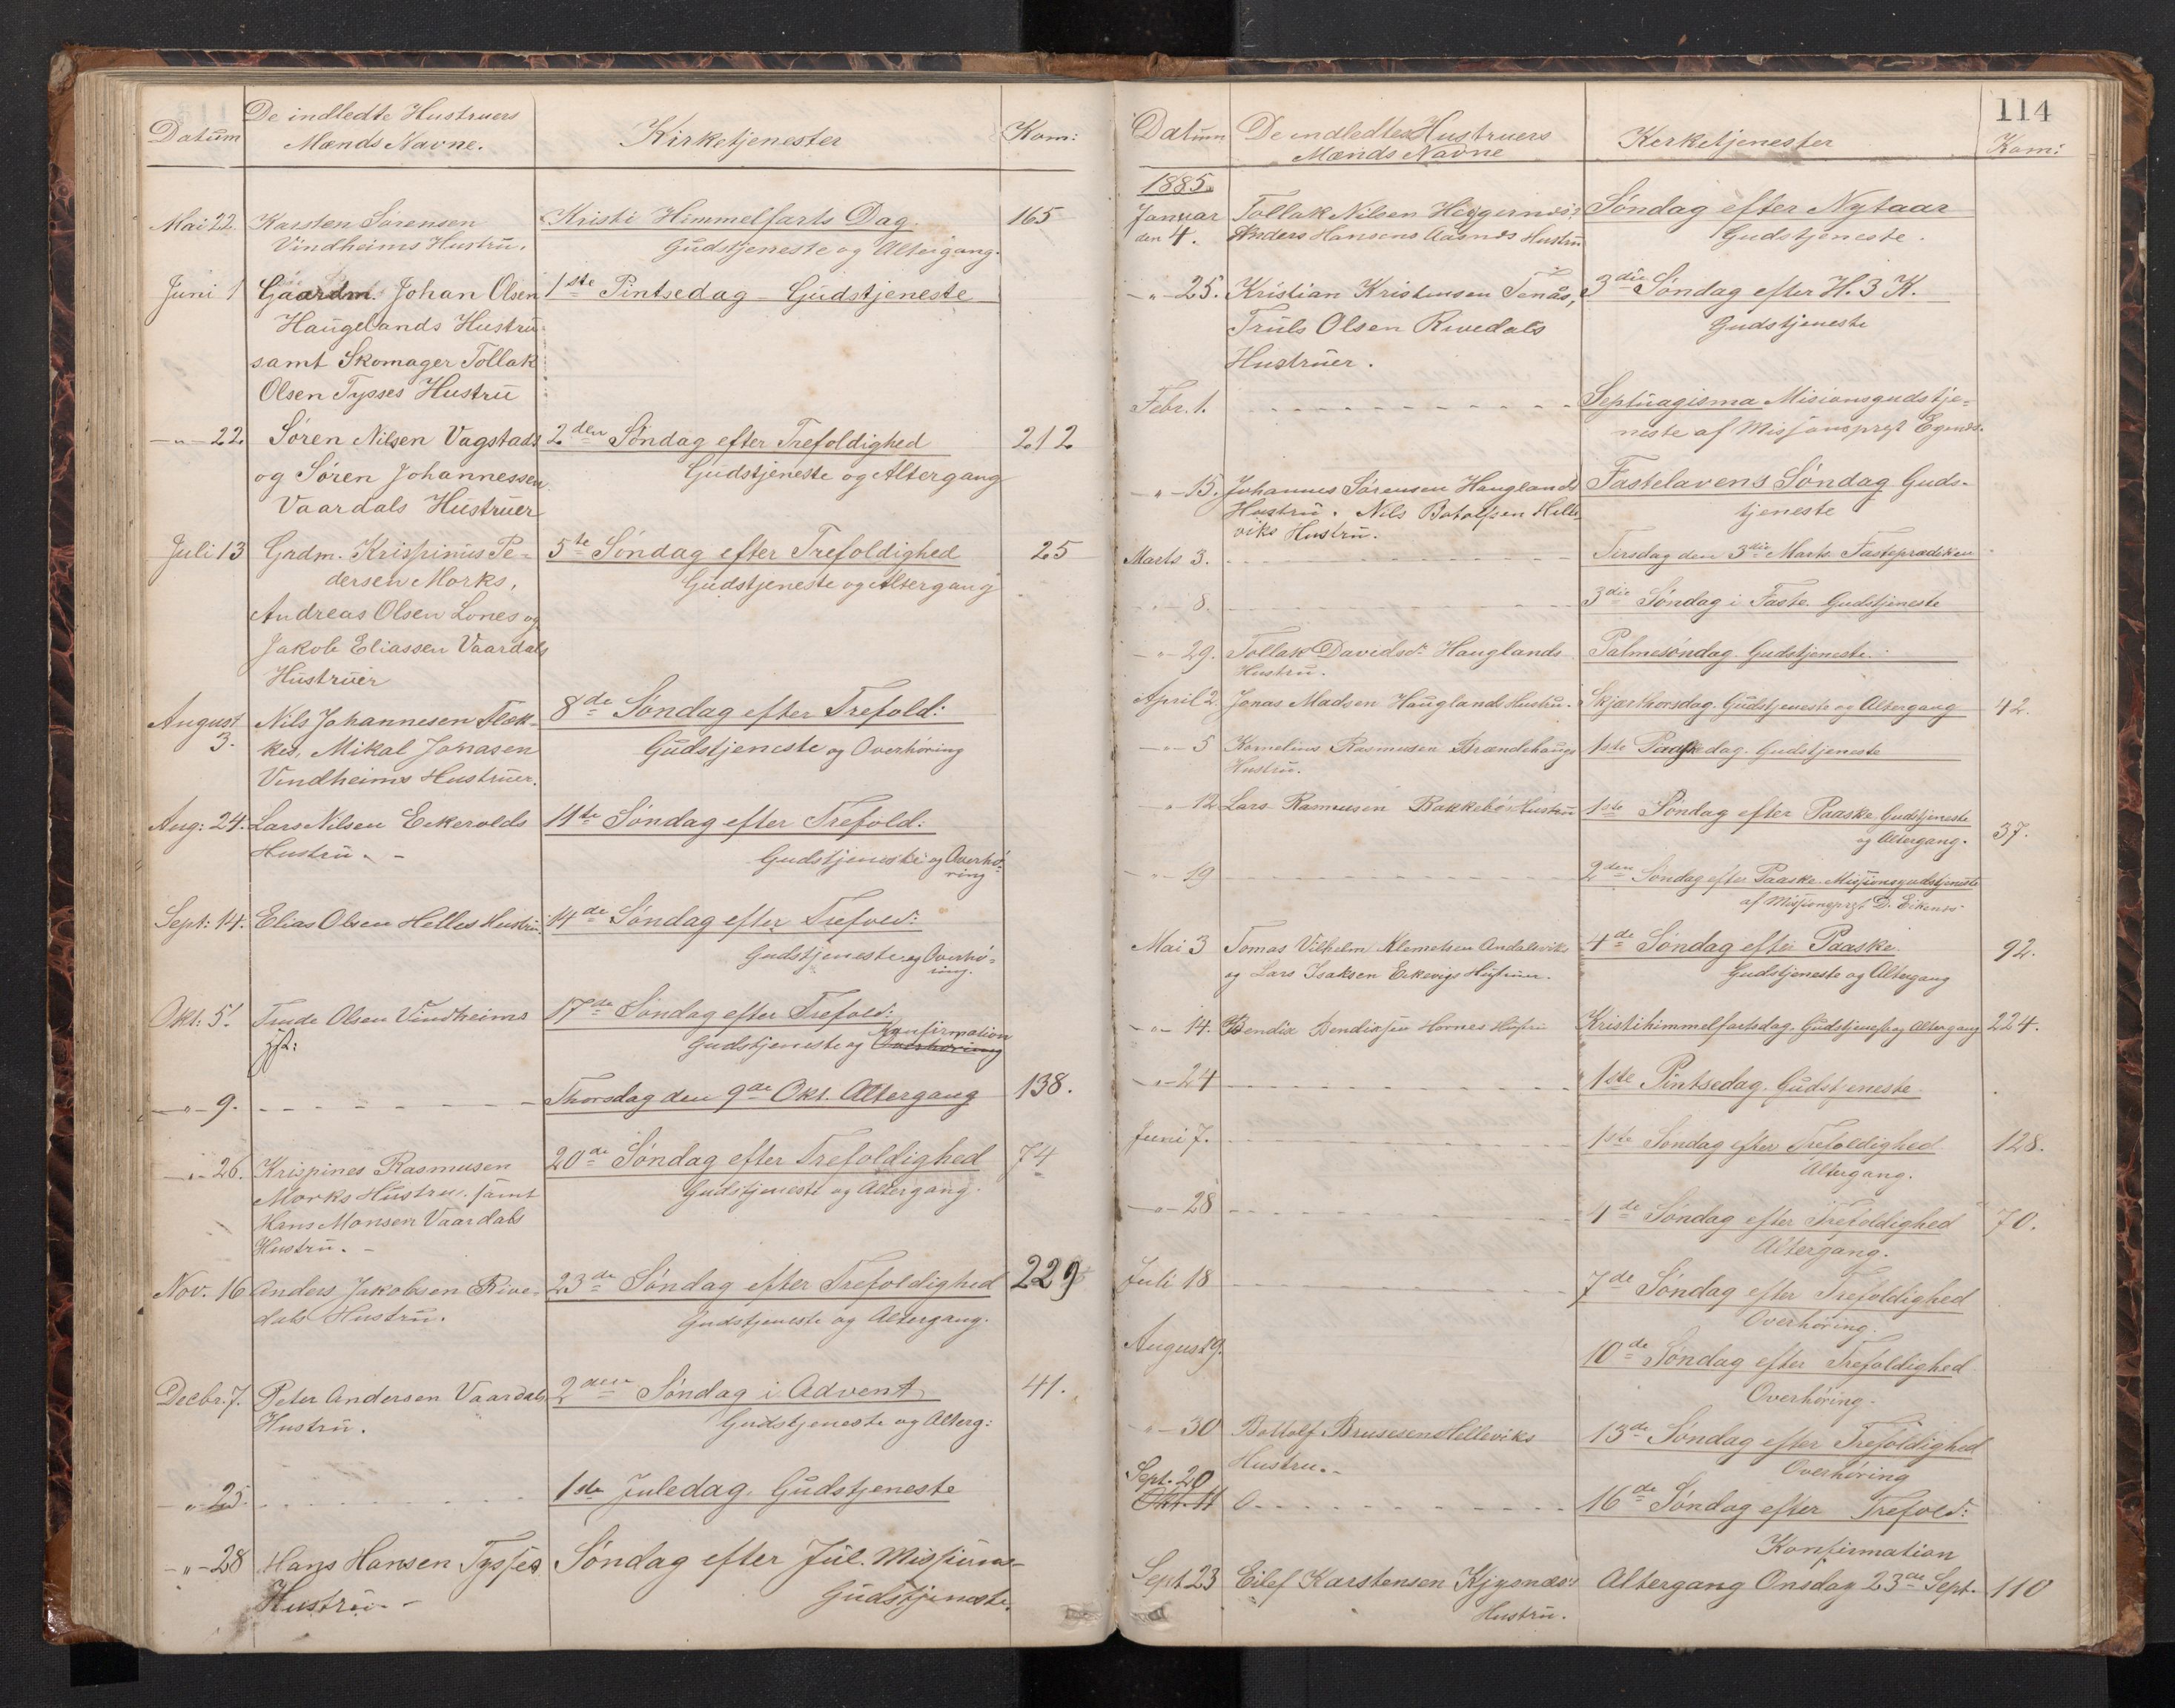 De indledte Hustruers
Datum
Mænds Navne.
Kirketjenester
Kom:
Mai 22. Karsten Sørensen Kristi Himmelfarts Dag. 165
Vindheims Hustru. Gudstjeneste og Altergang.
Juni 1 Gaardm. Johan Olsen 1ste Pintsedag - Gudstjeneste
Haugelands Hustru
samt Skomager Tollak
Olsen Tysses Hustru
-"- 22 Søren Nilsen Vagstads 2den Søndag efter Trefoldighed 212
og Søren Johannessen Gudstjeneste og Altergang
Vaardals Hustruer
Juli 13 Grdm. Krispinus Pe- 5te Søndag efter Trefoldighed 25
dersen Morks, Gudstjeneste og Altergang
Andreas Olsen Lones og
Jakob Eliassen Vaardals
Hustruer
August 3. Nils Johannesen Flek- 8de Søndag efter Trefold:
kes, Mikal Jonasen Gudstjeneste og Overhøring
Vindheims Hustruer.
Aug: 24. Lars Nilsen Eckerolds 11te Søndag efter Trefold:
Hustru. - Gudstjeneste og Overhø-
ring
Sept: 14. Elias Olsen Helles Hustru. 14de Søndag efter Trefold:
Gudstjeneste og Overhø-
ring.
Okt: 5. Trude Olsen Vindheims 17de Søndag efter Trefold:
Konfirmation
Gudstjeneste og Overhøring
-"- 9. Thorsdag den 9de Okt. Altergang 138.
-"- 26. Krispines Rasmusen 20de Søndag efter Trefoldighed 74
Morks Hustru. samt Gudstjeneste og Altergang.
Hans Monsen Vaardals
Hustru. -
Nov. 16 Anders Jakobsen Rive- 23de Søndag efter Trefoldighed 229
dals Hustru. Gudstjeneste og Altergang.
Decbr. 7. Peter Andersen Vaardals 2den Søndag i Advent 41.
Hustru. Gudstjeneste og Alterg:
-"- 25. 1ste Juledag. Gudstjeneste
-"- 28 Hans Hansen Tysses Søndag efter Jul. Missions-
Hustru. - Gudstjeneste.
114
Datum De indledtes Hustruers Kerketjenester
Mænds Navne Kom:
1885.
Januar Tollak Nilsen Heggernes, Søndag efter Nytaar
den 4. Anders Hansens Aasnes Hustru Gudstjeneste.
-"- 25. Kristian Kristensen Tenås, 3die Søndag efter H. 3 K.
Truls Olsen Rivedals Gudstjeneste
Hustruer.
Febr. 1. Septuagisma Misionsgudstje-
neste af Missionsprst Egenes.
-"- 15. Johannes Sørensen Hauglands Fastelavens Søndag Guds-
Hustru. Nils Botolfsen Helle- tjeneste
viks Hustru.
Marts 3. Tirsdag den 3die Marts. Fasteprædiken
-"- 8. 3die Søndag i Faste. Gudstjeneste
-"- 29. Tollak Davidsd. Hauglands Palmesøndag. Gudstjeneste.
Hustru.
April 2. Jonas Madsen Hauglands Hustru. Skjærthorsdag. Gudstjeneste og Altergang 42.
-"- 5 Kornelius Rasmusen Brændehaugs 1ste Paaskedag. Gudstjeneste
Hustru.
-"- 12 Lars Rasmusen Bakkebø Hustru 1ste Søndag efter Paaske. Gudstjeneste
og Altergang. 37.
-"- 19 2den Søndag efter Paaske. Missionsgudstjeneste
af Missionsprst D. Eikenes
Mai 3 Tomas Vilhelm Klemetsen Andalsviks 4de Søndag efter Paaske. 92.
og Lars Isaksen Eckevigs Hustruer. Gudstjeneste og Altergang
-"- 14. Bendix Bendixsen Hornes Hustru Kristihimmelfartsdag. Gudstjeneste og Altergang 224.
-"- 24 1ste Pintsedag. Gudstjeneste
Juni 7. 1ste Søndag efter Trefoldighed 128.
Altergang.
-"- 28 4de Søndag efter Trefoldighed 70.
Altergang.
Juli 18 7de Søndag efter Trefoldighed
Overhøring.
August 9. 10de Søndag efter Trefoldighed
Overhøring.
-"- 30 Bottolf Brusesen Helleviks 13de Søndag efter Trefoldighed
Hustru. - Overhøring
Sept. 20
Okt. 11 0 16de Søndag efter Trefold:
Konfirmation
Sept 23 Eilef Karstensen Kjysnæs's Altergang Onsdag 23de Sept. 110
Hustru.